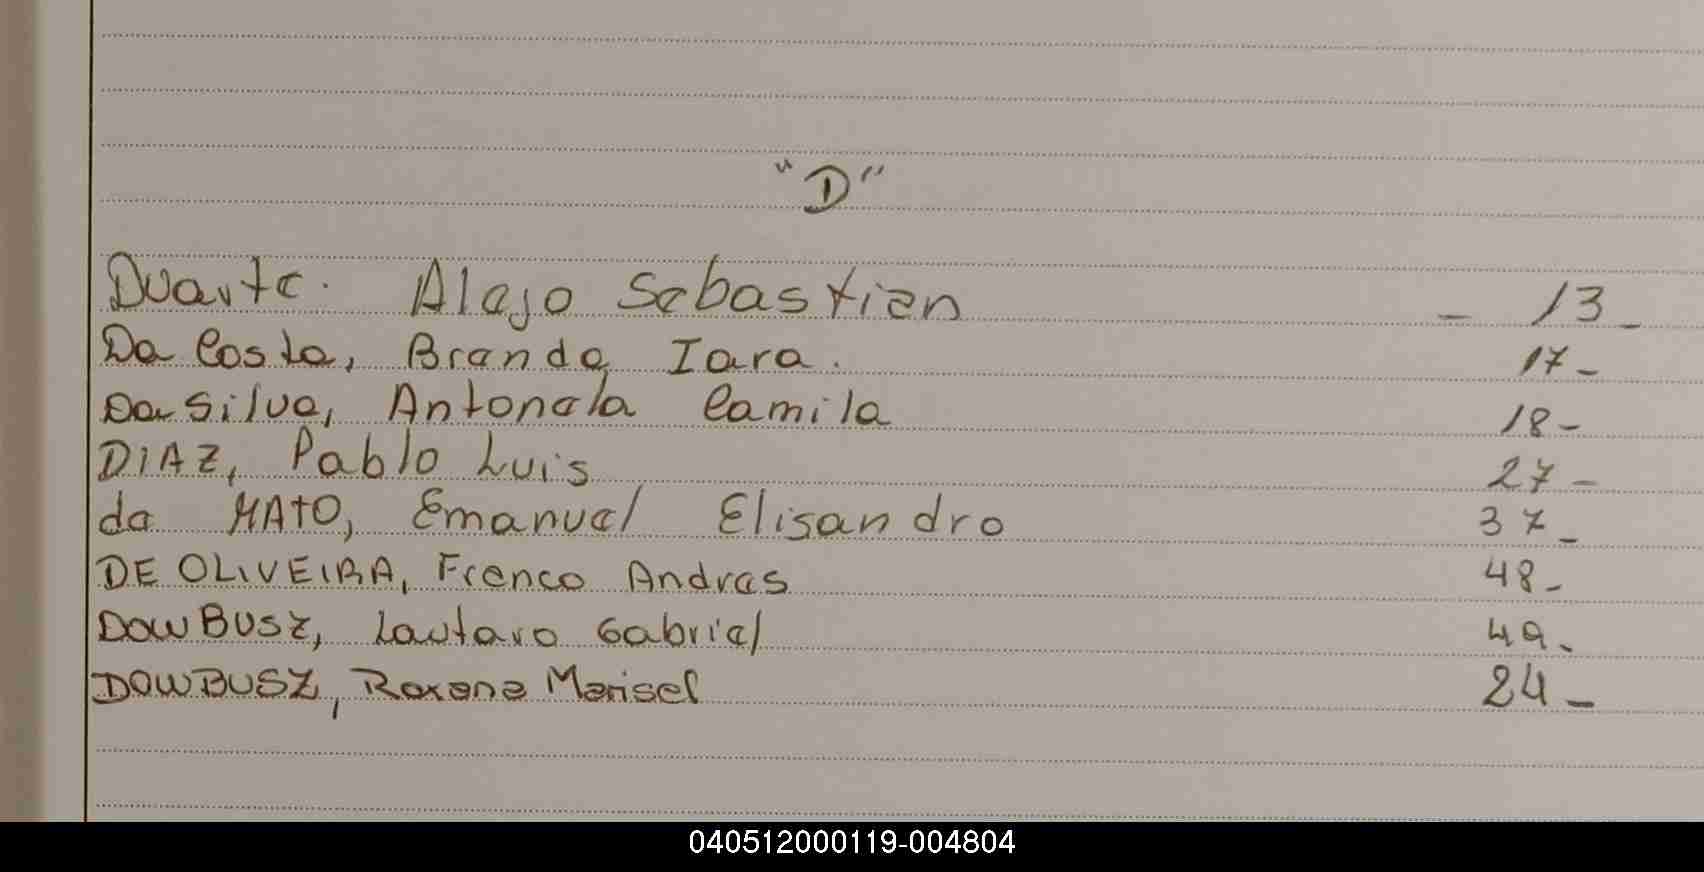 "D"
Duarte. Alejo Sebastian - 13 -
Da Costa, Brenda Iara. 17 -
Da Silva, Antonela Camila 18 -
DIAZ, Pablo Luis 27 -
da MATO, Emanuel Elisandro 37 -
DE OLIVEIRA, Franco Andres 48 -
DOWBUSZ, Lautaro Gabriel 49 -
DOWBUSZ, Roxana Marisel 24 -
040512000119-004804